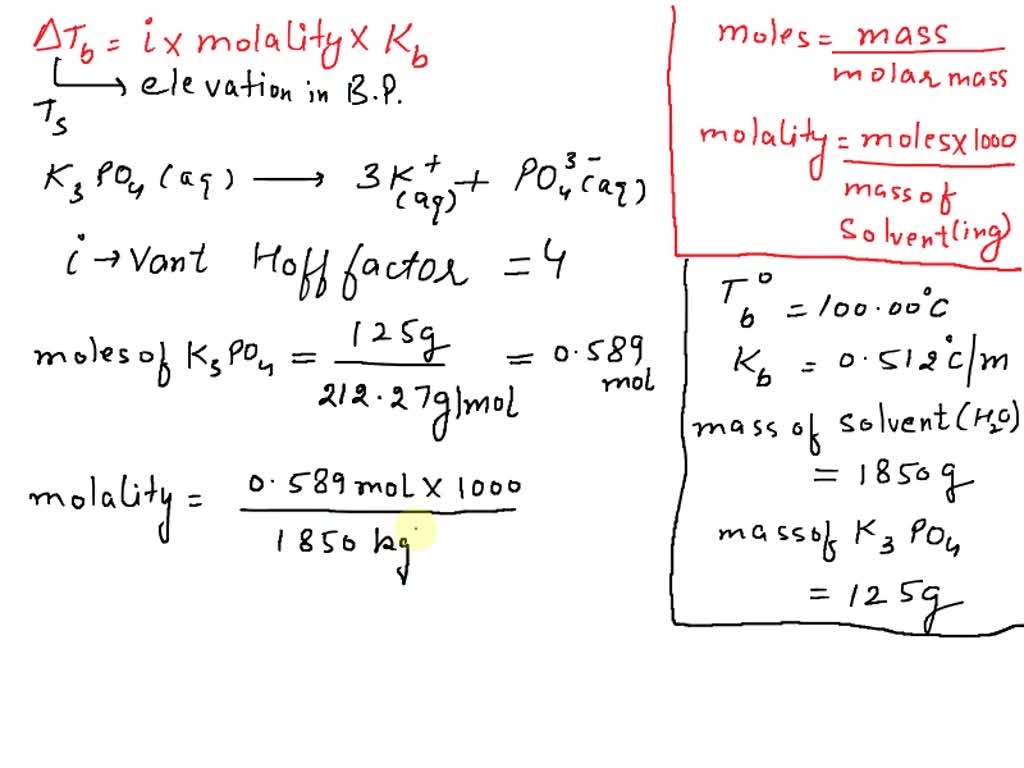 ΔTb = i x molality x Kb
Ts → elevation in B.P.
K3PO4(aq) → 3K+(aq) + PO4 3-(aq)
i → Vant Hoff factor = 4
moles of K3PO4 = 125g / 212.27g/mol = 0.589 mol
molality = 0.589mol x 1000 / 1850 kg
moles = mass / molar mass
molality = moles x 1000 / mass of solvent(ing)
Tb° = 100.00°C
Kb = 0.512°c/m
mass of solvent (H2O)
= 1850g
mass of K3PO4
= 125g